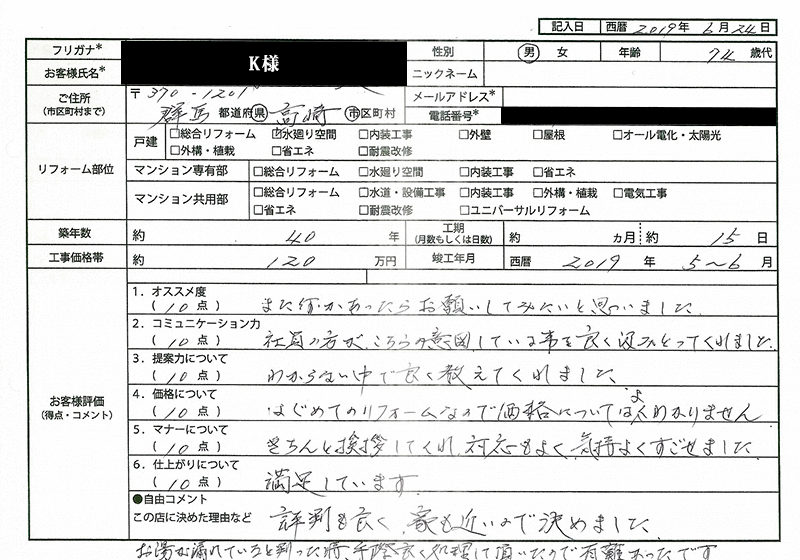 記入日 西暦 2019年 6月 24日
フリガナ*
お客様氏名*
K様
性別 男 女 年齢 74 歳代
ニックネーム
ご住所
(市区町村まで)
〒370-1201
群馬 都道府県 高崎 市区町村
メールアドレス*
電話番号*
リフォーム部位
戸建 □総合リフォーム ☑水廻り空間 □内装工事 □外壁 □屋根 □オール電化・太陽光
□外構・植栽 □省エネ □耐震改修
マンション専有部 □総合リフォーム □水廻り空間 □内装工事 □省エネ
マンション共用部 □総合リフォーム □水道・設備工事 □内装工事 □外構・植栽 □電気工事
□省エネ □耐震改修 □ユニバーサルリフォーム
築年数 約 40 年 工期 (月数もしくは日数) 約 ヵ月 約 15 日
工事価格帯 約 120 万円 竣工年月 西暦 2019 年 5~6 月
お客様評価
(得点・コメント)
1.オススメ度
(10点) また何かあったらお願いしてみたいと思いました。
2.コミュニケーション力
(10点) 社員の方が、こちらの意図している事を良く汲みとってくれました。
3.提案力について
(10点) わからない中で良く教えてくれました
4.価格について
(10点) はじめてのリフォームなので価格についてはよくわかりません
5.マナーについて
(10点) きちんと挨拶してくれ、対応もよく、気持よくすごせました
6.仕上がりについて
(10点) 満足しています。
●自由コメント
この店に決めた理由など 評判も良く、家も近いので決めました。
お湯が漏れていると判った時、手際良く処理して頂いたので有難かったです